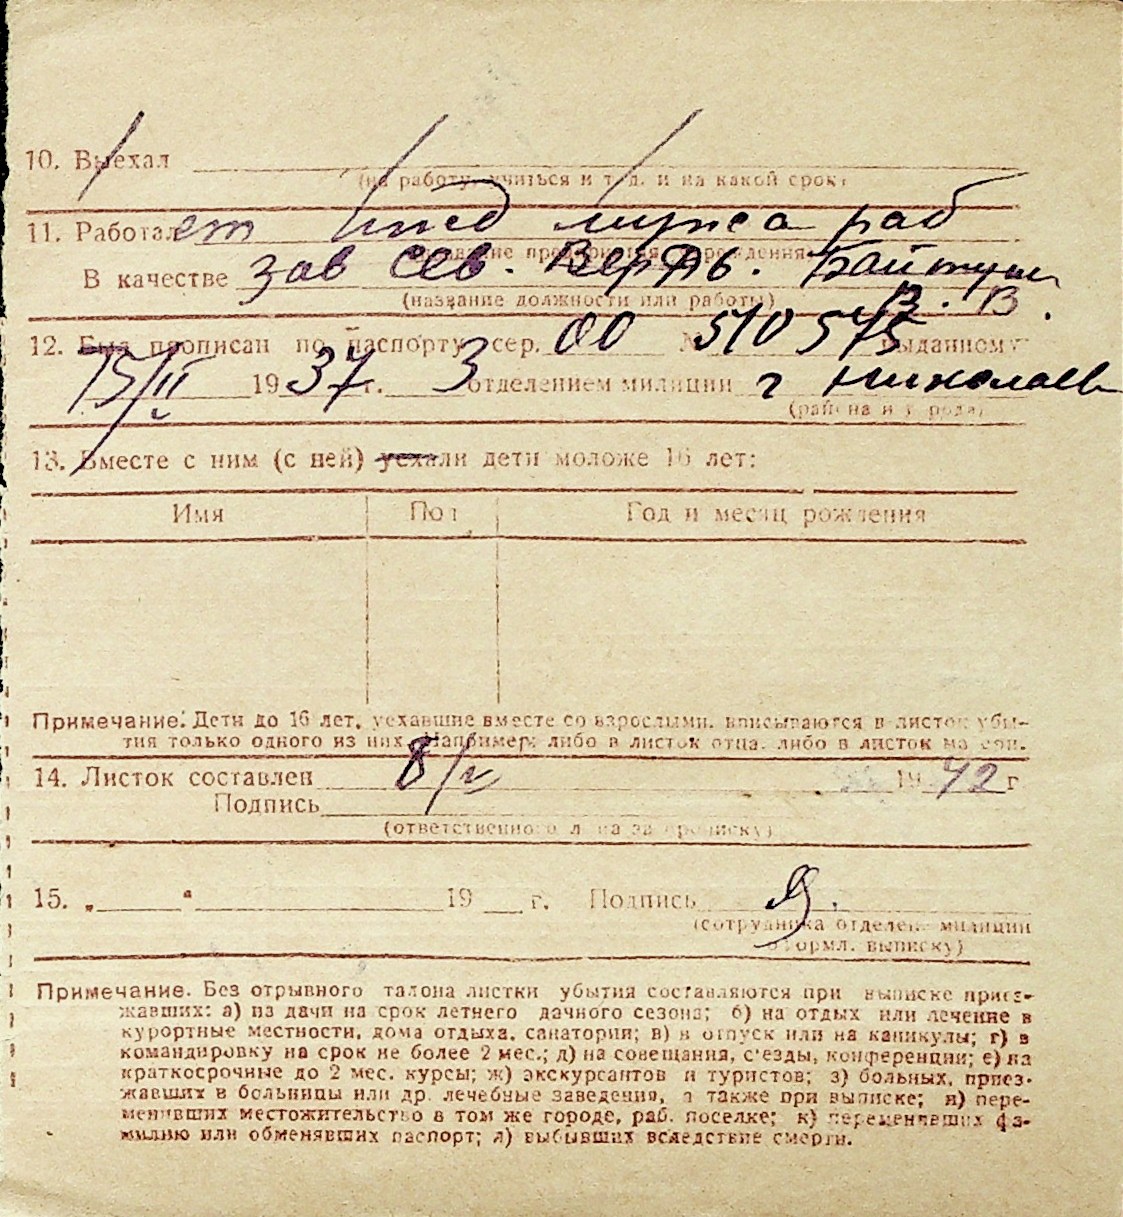 10. Выехал
(на работу, учиться и т. д. и на какой срок)
11. Работает ижд мужа раб
В качестве зав Сев. Верфь. Байтуш
(название должности или работы) В. В.
12. Был прописан по паспорту сер. 00 № 510575 выданному
15/II 1937 г. 3 отделением милиции г Николаев
(района и города)
13. Вместе с ним (с ней) уехали дети моложе 16 лет:
Имя Пол Год и месяц рождения
Примечание: Дети до 16 лет, уехавшие вместе со взрослыми, вписываются в листок убы-
тия только одного из них. Например: либо в листок отца, либо в листок матери.
14. Листок составлен 8/ 1942 г
Подпись
(ответственного лица за прописку)
15. „ “ 19 г. Подпись
(сотрудника отделен. милиции
оформл. выписку)
Примечание. Без отрывного талона листки убытия составляются при выписке приез-
жавших: а) из дачи на срок летнего дачного сезона; б) на отдых или лечение в
курортные местности, дома отдыха, санатории; в) в отпуск или на каникулы; г) в
командировку на срок не более 2 мес.; д) на совещания, с'езды, конференции; е) на
краткосрочные до 2 мес. курсы; ж) экскурсантов и туристов; з) больных, приез-
жавших в больницы или др. лечебные заведения, а также при выписке; и) пере-
менивших местожительство в том же городе, раб. поселке; к) переменивших фа-
милию или обменявших паспорт; л) выбывших вследствие смерти.